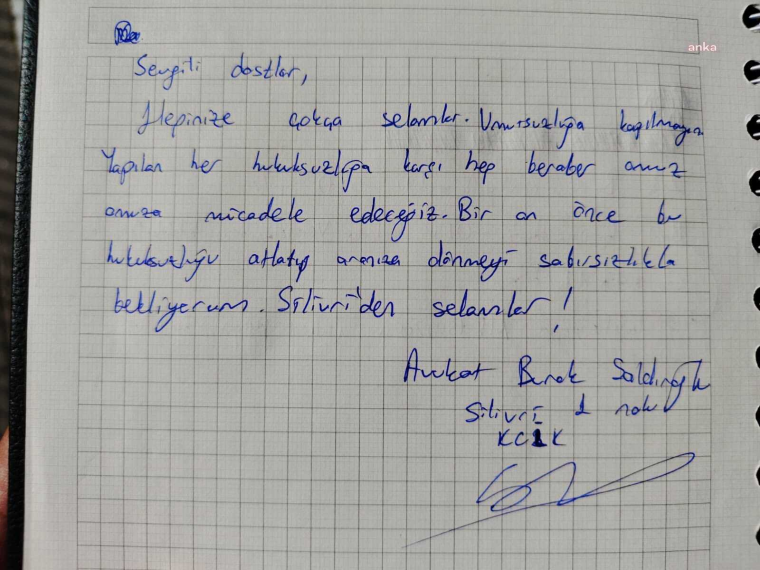 anka
Sevgili dostlar,
Hepinize çokça selamlar. Umutsuzluğa kapılmayın.
Yapılan her hukuksuzluğa karşı hep beraber omuz
omuza mücadele edeceğiz. Bir an önce bu
hukuksuzluğu atlatıp aranıza dönmeyi sabırsızlıkla
bekliyorum. Silivri'den selamlar!
Avukat Burak Saldıroğlu
Silivri 1 nolu
KCİK